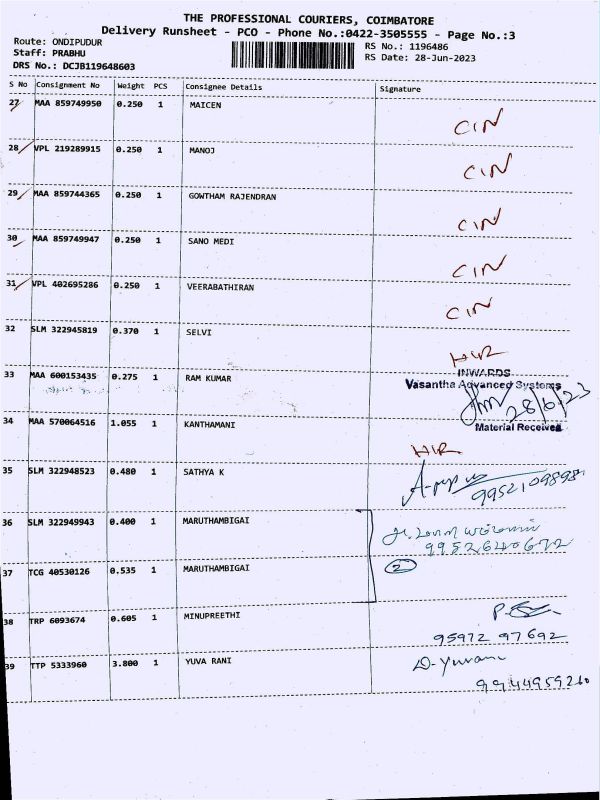 THE PROFESSIONAL COURIERS, COIMBATORE
Delivery Runsheet - PCO - Phone No.:0422-3505555 - Page No.:3
Route: ONDIPUDUR
Staff: PRABHU
DRS No.: DCJB119648603
RS No.: 1196486
RS Date: 28-Jun-2023
S No Consignment No Weight PCS Consignee Details Signature
27 MAA 859749950 0.250 1 MAICEN
CIN
28 VPL 219289915 0.250 1 MANOJ
CIN
29 MAA 859744365 0.250 1 GOWTHAM RAJENDRAN
CIN
30 MAA 859749947 0.250 1 SANO MEDI
CIN
31 VPL 402695286 0.250 1 VEERABATHIRAN
CIN
32 SLM 322945819 0.370 1 SELVI
H/R
33 MAA 600153435 0.275 1 RAM KUMAR
INWARDS
Vasantha Advanced Systems
28/6/23
Material Received
34 MAA 570064516 1.055 1 KANTHAMANI
H/R
35 SLM 322948523 0.480 1 SATHYA K
36 SLM 322949943 0.400 1 MARUTHAMBIGAI
9952640672
37 TCG 40530126 0.535 1 MARUTHAMBIGAI
2
38 TRP 6093674 0.605 1 MINUPREETHI
95972 97692
39 TTP 5333960 3.800 1 YUVA RANI
D-Yuvarani
9944959210